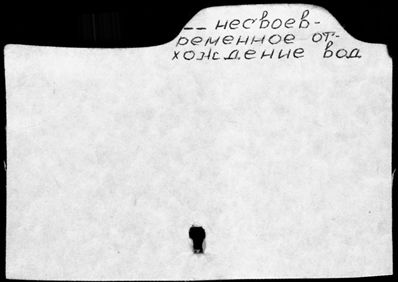 -- несвоев-
ременное от-
хождение вод